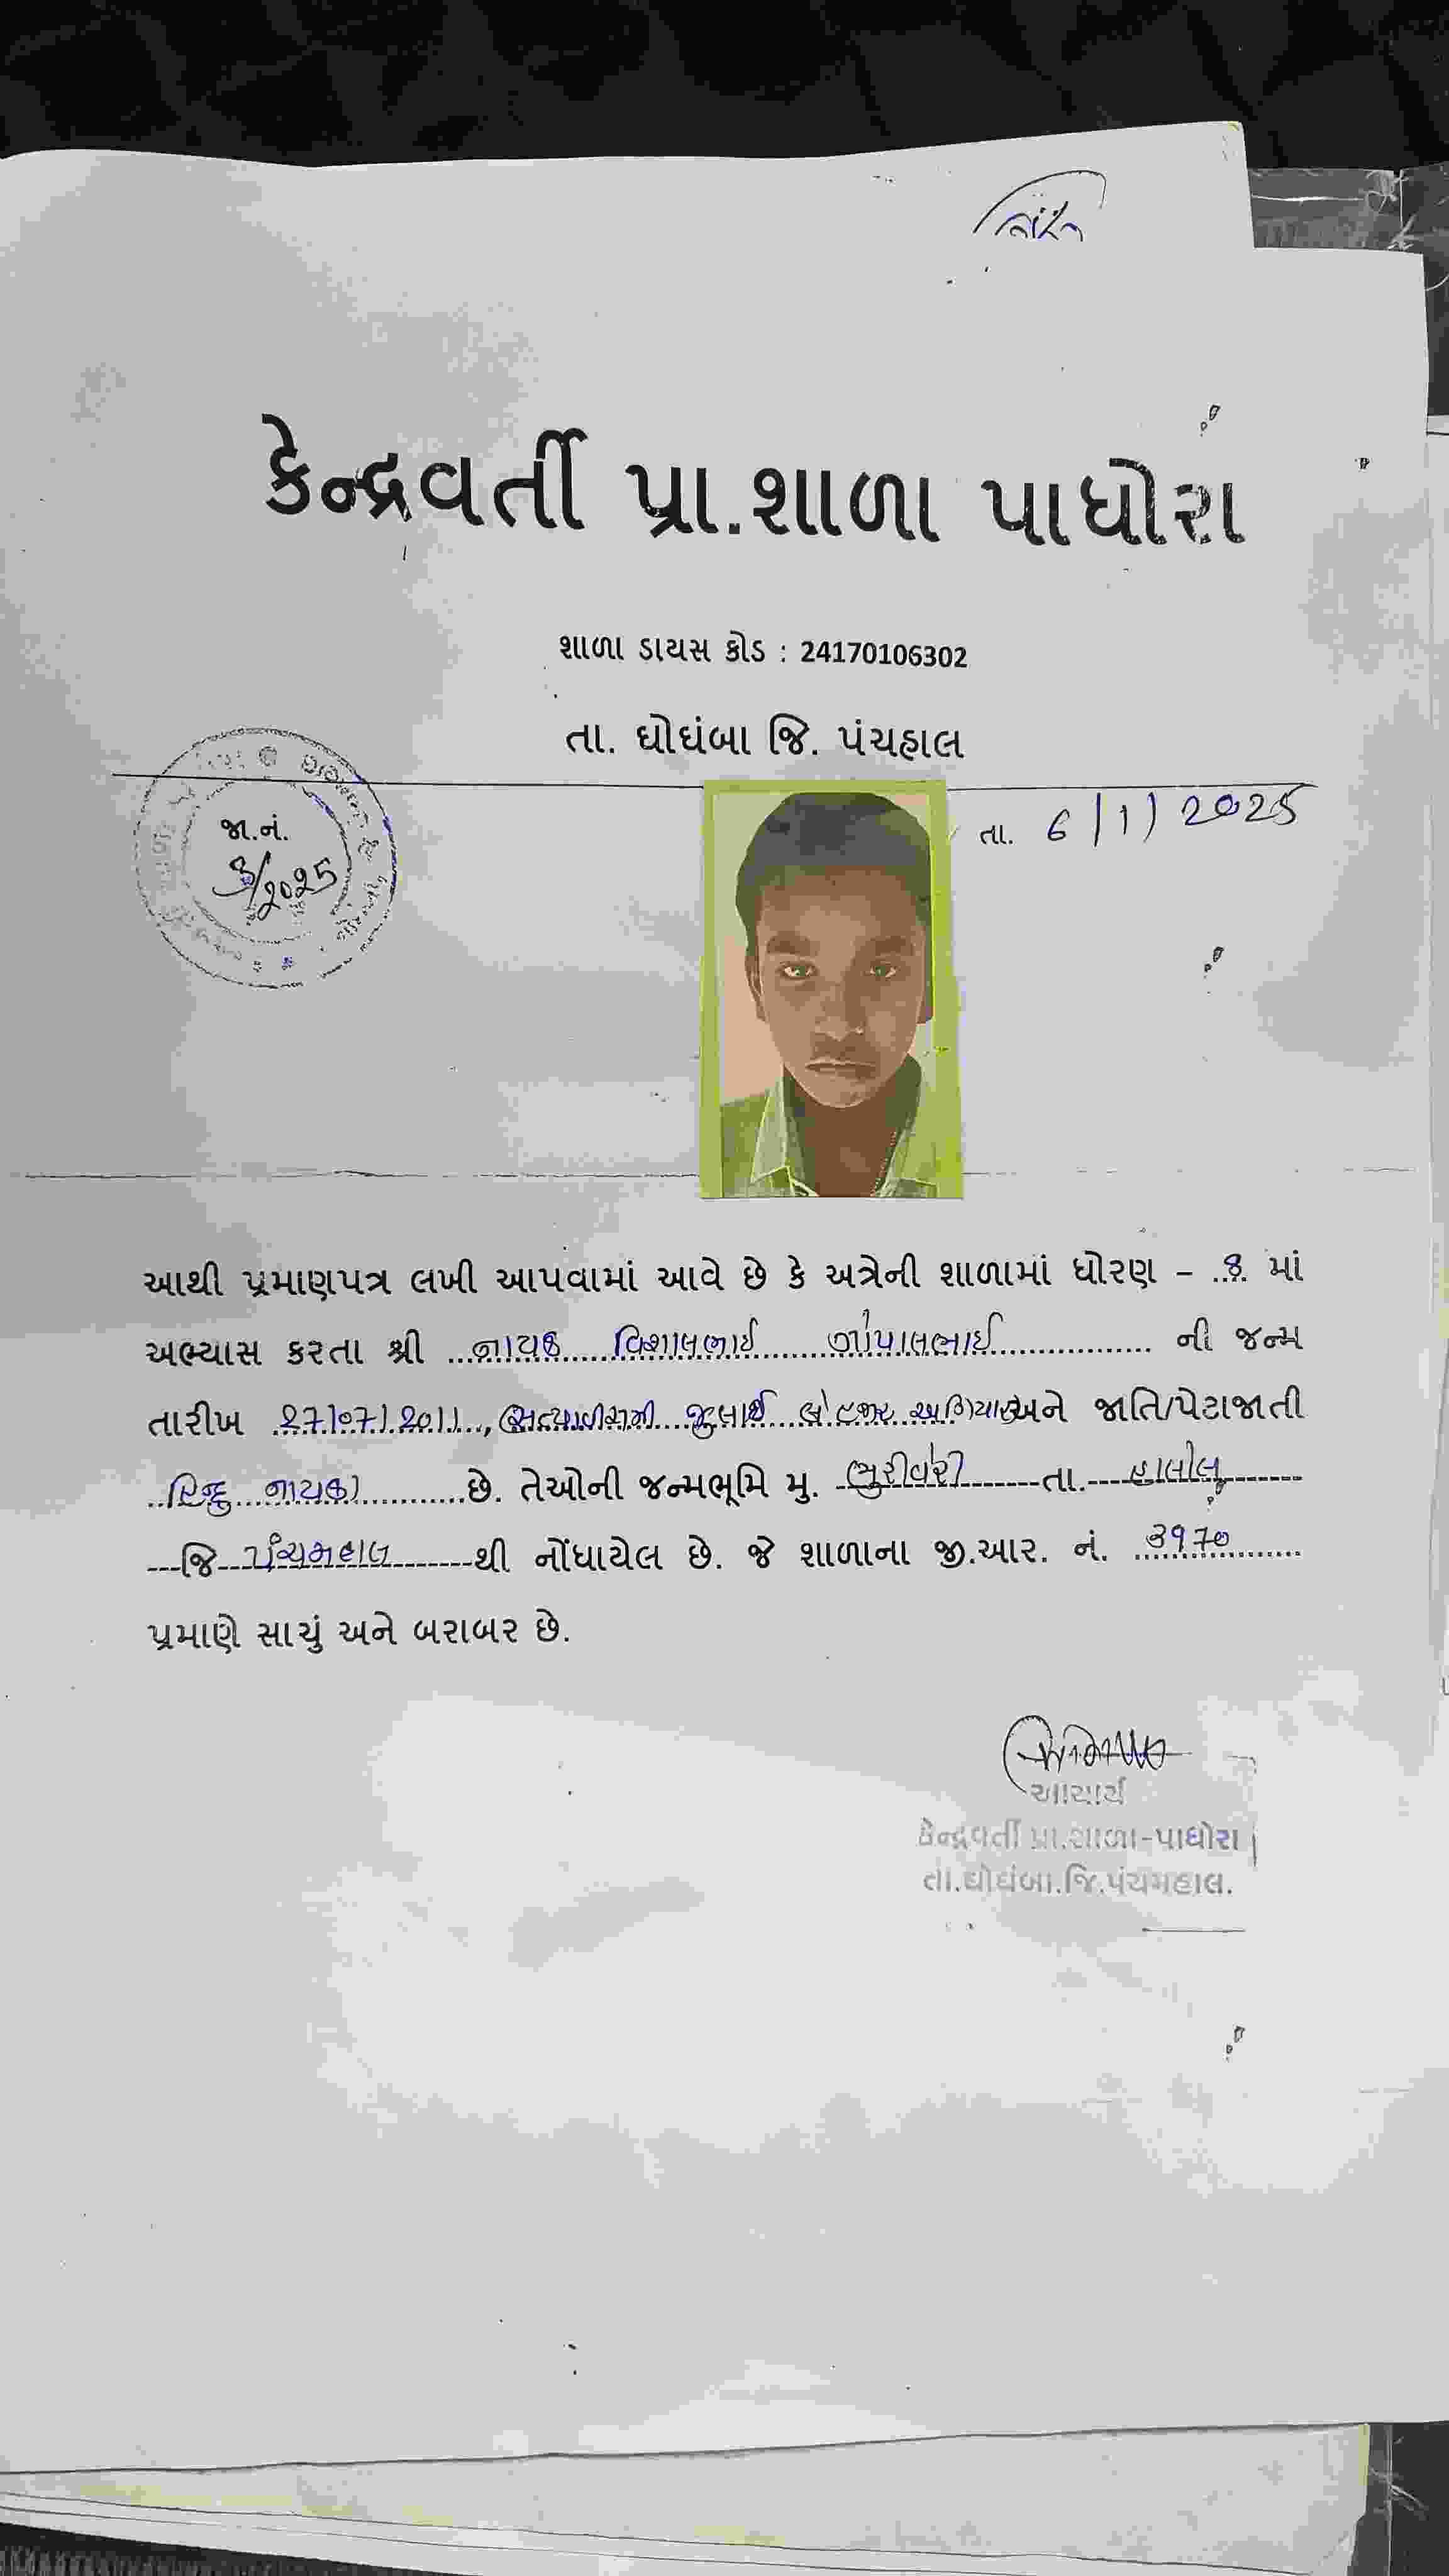 કેન્દ્રવર્તી પ્રા.શાળા પાધોરા
શાળા ડાયસ કોડ : 24170106302
તા. ઘોઘંબા જિ. પંચહાલ
જા.નં.
3/2025
તા. 6/1/2025
આથી પ્રમાણપત્ર લખી આપવામાં આવે છે કે અત્રેની શાળામાં ધોરણ – 8 માં
અભ્યાસ કરતા શ્રી નાયક વિશાલભાઈ ગોપાલભાઈ ની જન્મ
તારીખ 27/07/2011, સત્યાવીસમી જુલાઈ બે હજાર અગિયાર અને જાતિ/પેટાજાતી
હિન્દુ નાયકા છે. તેઓની જન્મભૂમિ મુ. ભુરીવેરી તા. હાલોલ
જિ પંચમહાલ થી નોંધાયેલ છે. જે શાળાના જી.આર. નં. ૩૧૭૦
પ્રમાણે સાચું અને બરાબર છે.
આચાર્ય
કેન્દ્રવર્તી પ્રા.શાળા-પાધોરા
તા.ઘોઘંબા.જિ.પંચમહાલ.